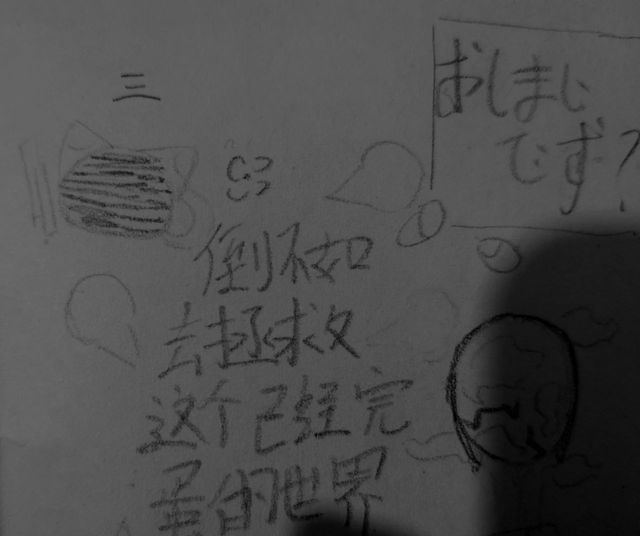 三
おしまい
です?
倒不如
去拯救
这个已经完
蛋的世界